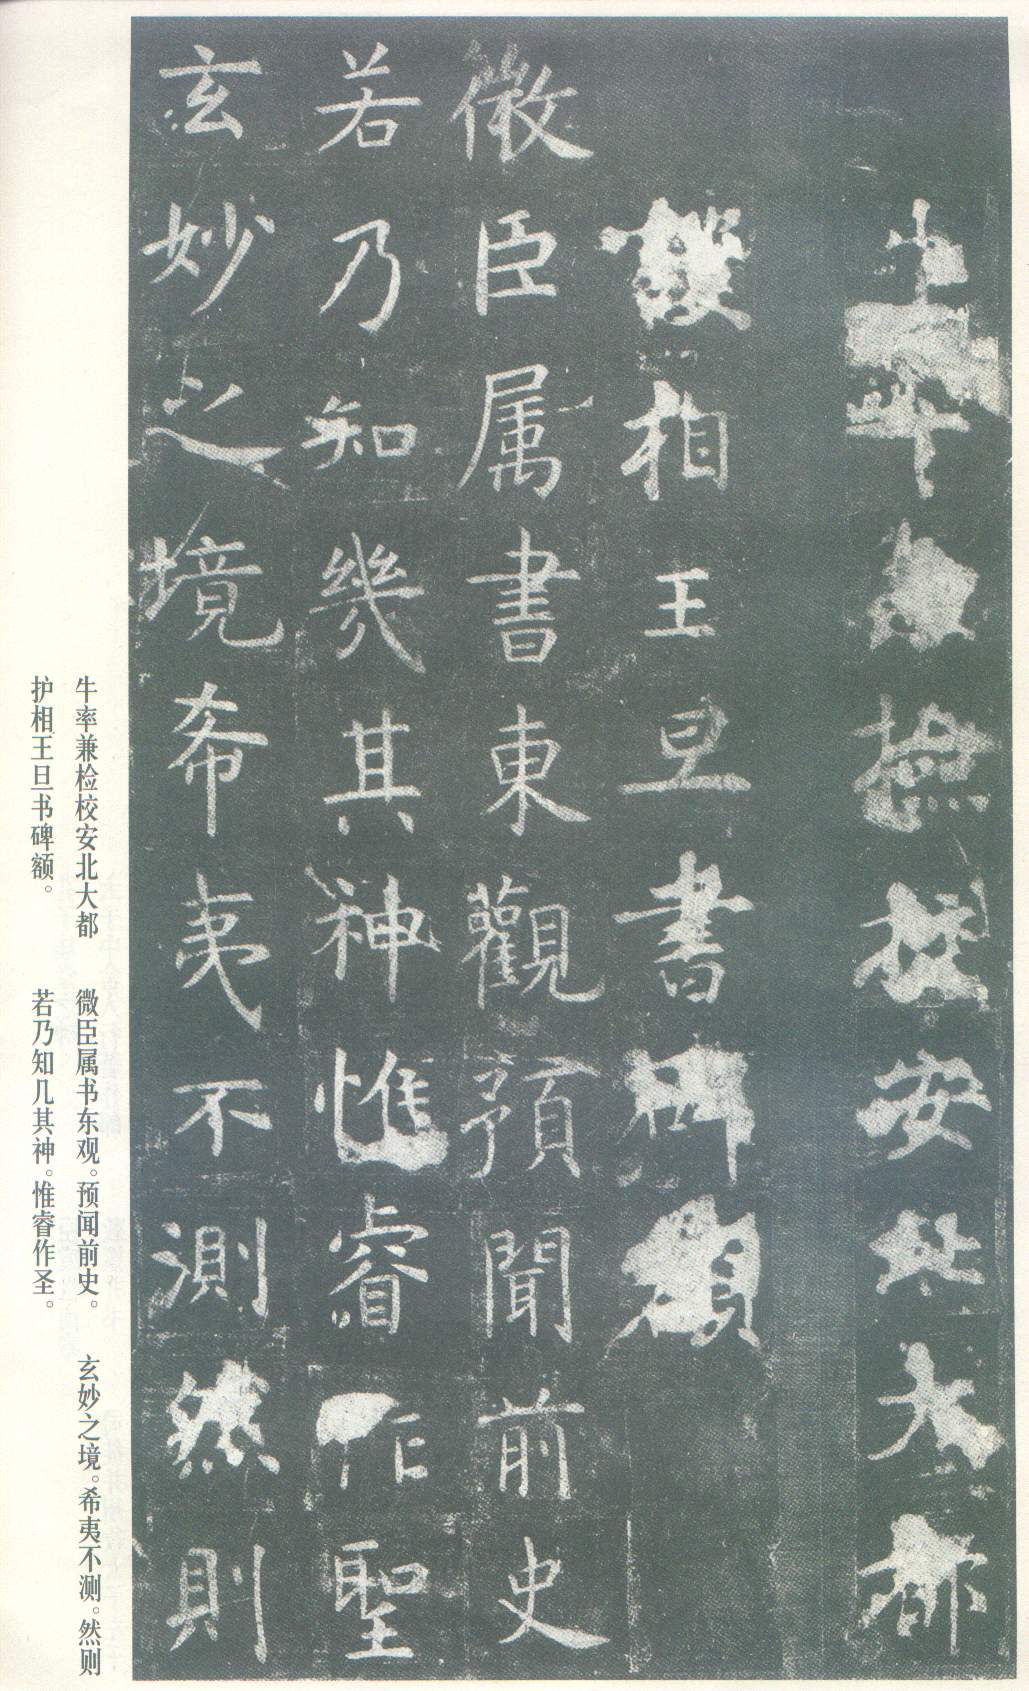 牛率兼檢校安北大都
護相王旦書碑額
微臣属書東觀預聞前史
若乃知幾其神惟睿作聖
玄妙之境希夷不測然則
牛率兼检校安北大都
护相王旦书碑额。
微臣属书东观。预闻前史。
若乃知几其神。惟睿作圣。
玄妙之境。希夷不测。然则